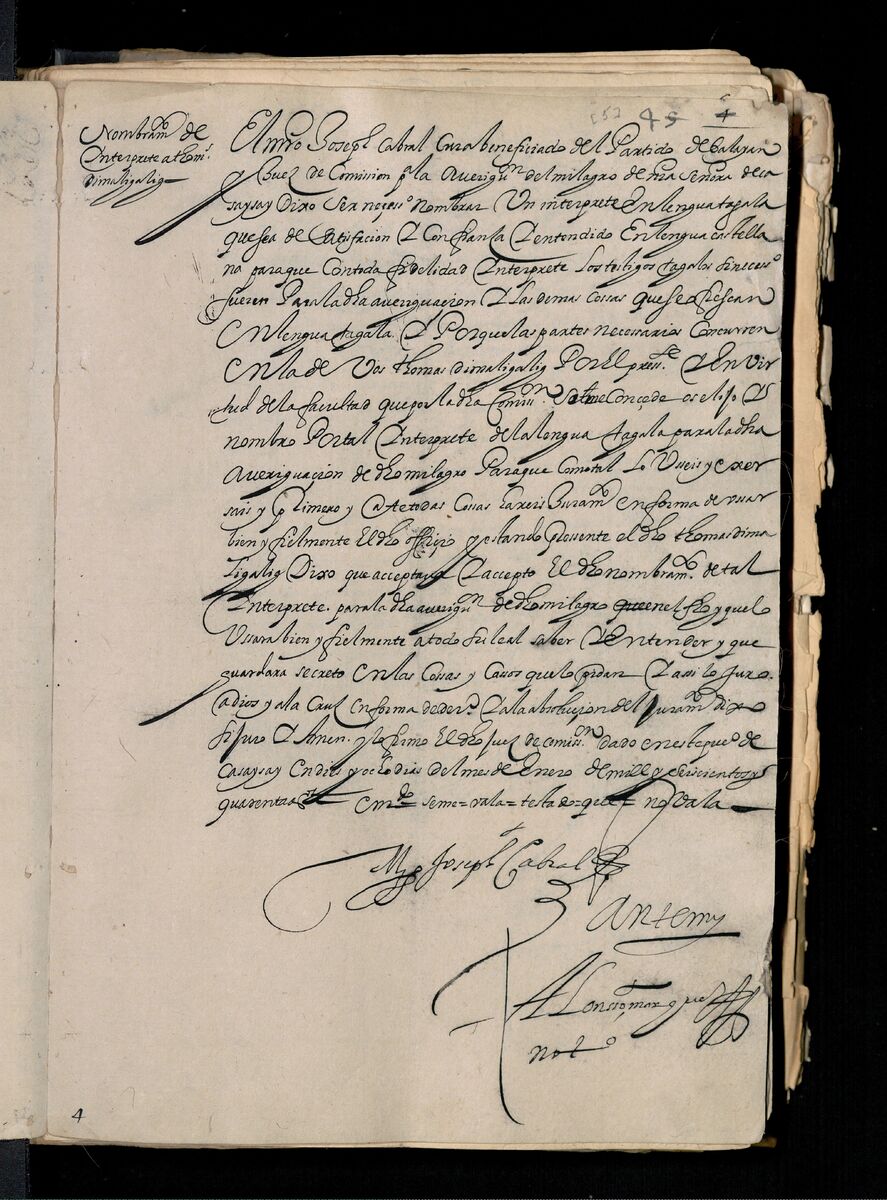 [5] 45 4
Nombram.to de
Interprete a thom.s
dimaligalig
El mro Joseph Cabral Cura beneficiado del Partido de balayan
y Juez de Comission p.a la Averigu.on del milagro de nra señora de ca
saysay Dixo ser neçess.o nombrar Un interprete En lengua tagala
que sea de satisfacion Y Confiansa Y entendido En lengua castella
na para que Con toda fidelidad Interprete Los testigos tagalos si necess.o
fueren Para la dha averiguacion Y las demas cossas que se ofrescan
En lengua tagala Y Porque las partes necessarias Concurren
En la de Vos thomas dimaligalig Por El press.te Y En vir
tud de la facultad que por la dha Comiss.on se me Conçede os elijo Y
nombro Por tal Interprete de la lengua tagala para la dha
Averiguacion de dho milagro Para que Como tal Lo Useis y exer
sais y primero y Ante todas Cossas hareis Juram.to en forma de usar
bien y fielmente El dho officio y estando presente el dho thomas dima
ligalig Dixo que acceptava Y accepto El dho nombram.to de tal
Interprete para la dha averigu.on de dho milagro que en el fho y que lo
Ussara bien y fielmente a todo su leal saber Y Entender y que
guardara secreto En las Cossas y Casos que lo pidan Y assi lo juro
a dios y a la Cruz En forma de der.o Y a la absolucion del juram.to dixo
si juro Y Amen y lo firmo El dho juez de comiss.on dado en este pueo de
Casaysay En dies y ocho dias del mes de Enero de mill y seiscientos y
quarenta a.s Em.do = se me = vala = testado = que = no vala
M.o Joseph Cabral
Ante my
Alonsso marquez
not.o
4